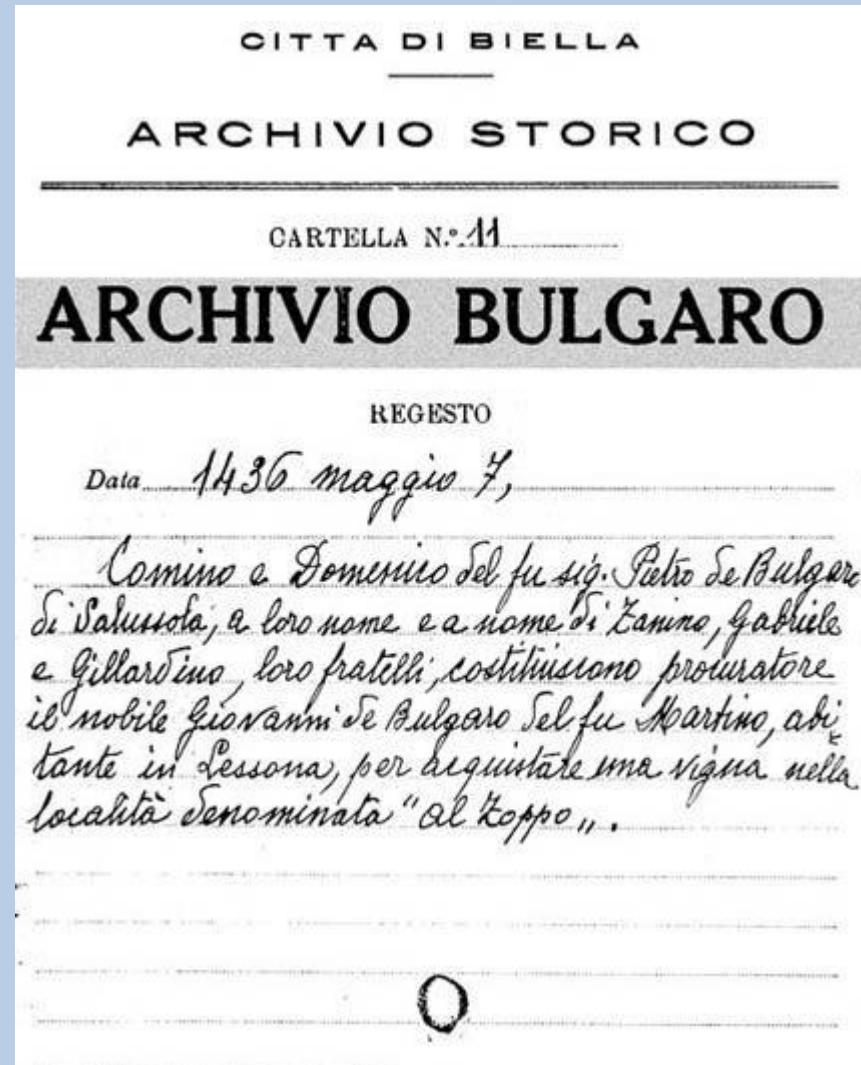 CITTA DI BIELLA
ARCHIVIO STORICO
CARTELLA N.º 11
ARCHIVIO BULGARO
REGESTO
Data 1436 maggio 7,
Comino e Domenico del fu sig. Pietro de Bulgaro
di Salussola, a loro nome e a nome di Zanino, Gabriele
e Gillardino, loro fratelli, costituiscono procuratore
il nobile Giovanni de Bulgaro del fu Martino, abi-
tante in Lessona, per acquistare una vigna nella
località denominata "al Zoppo".